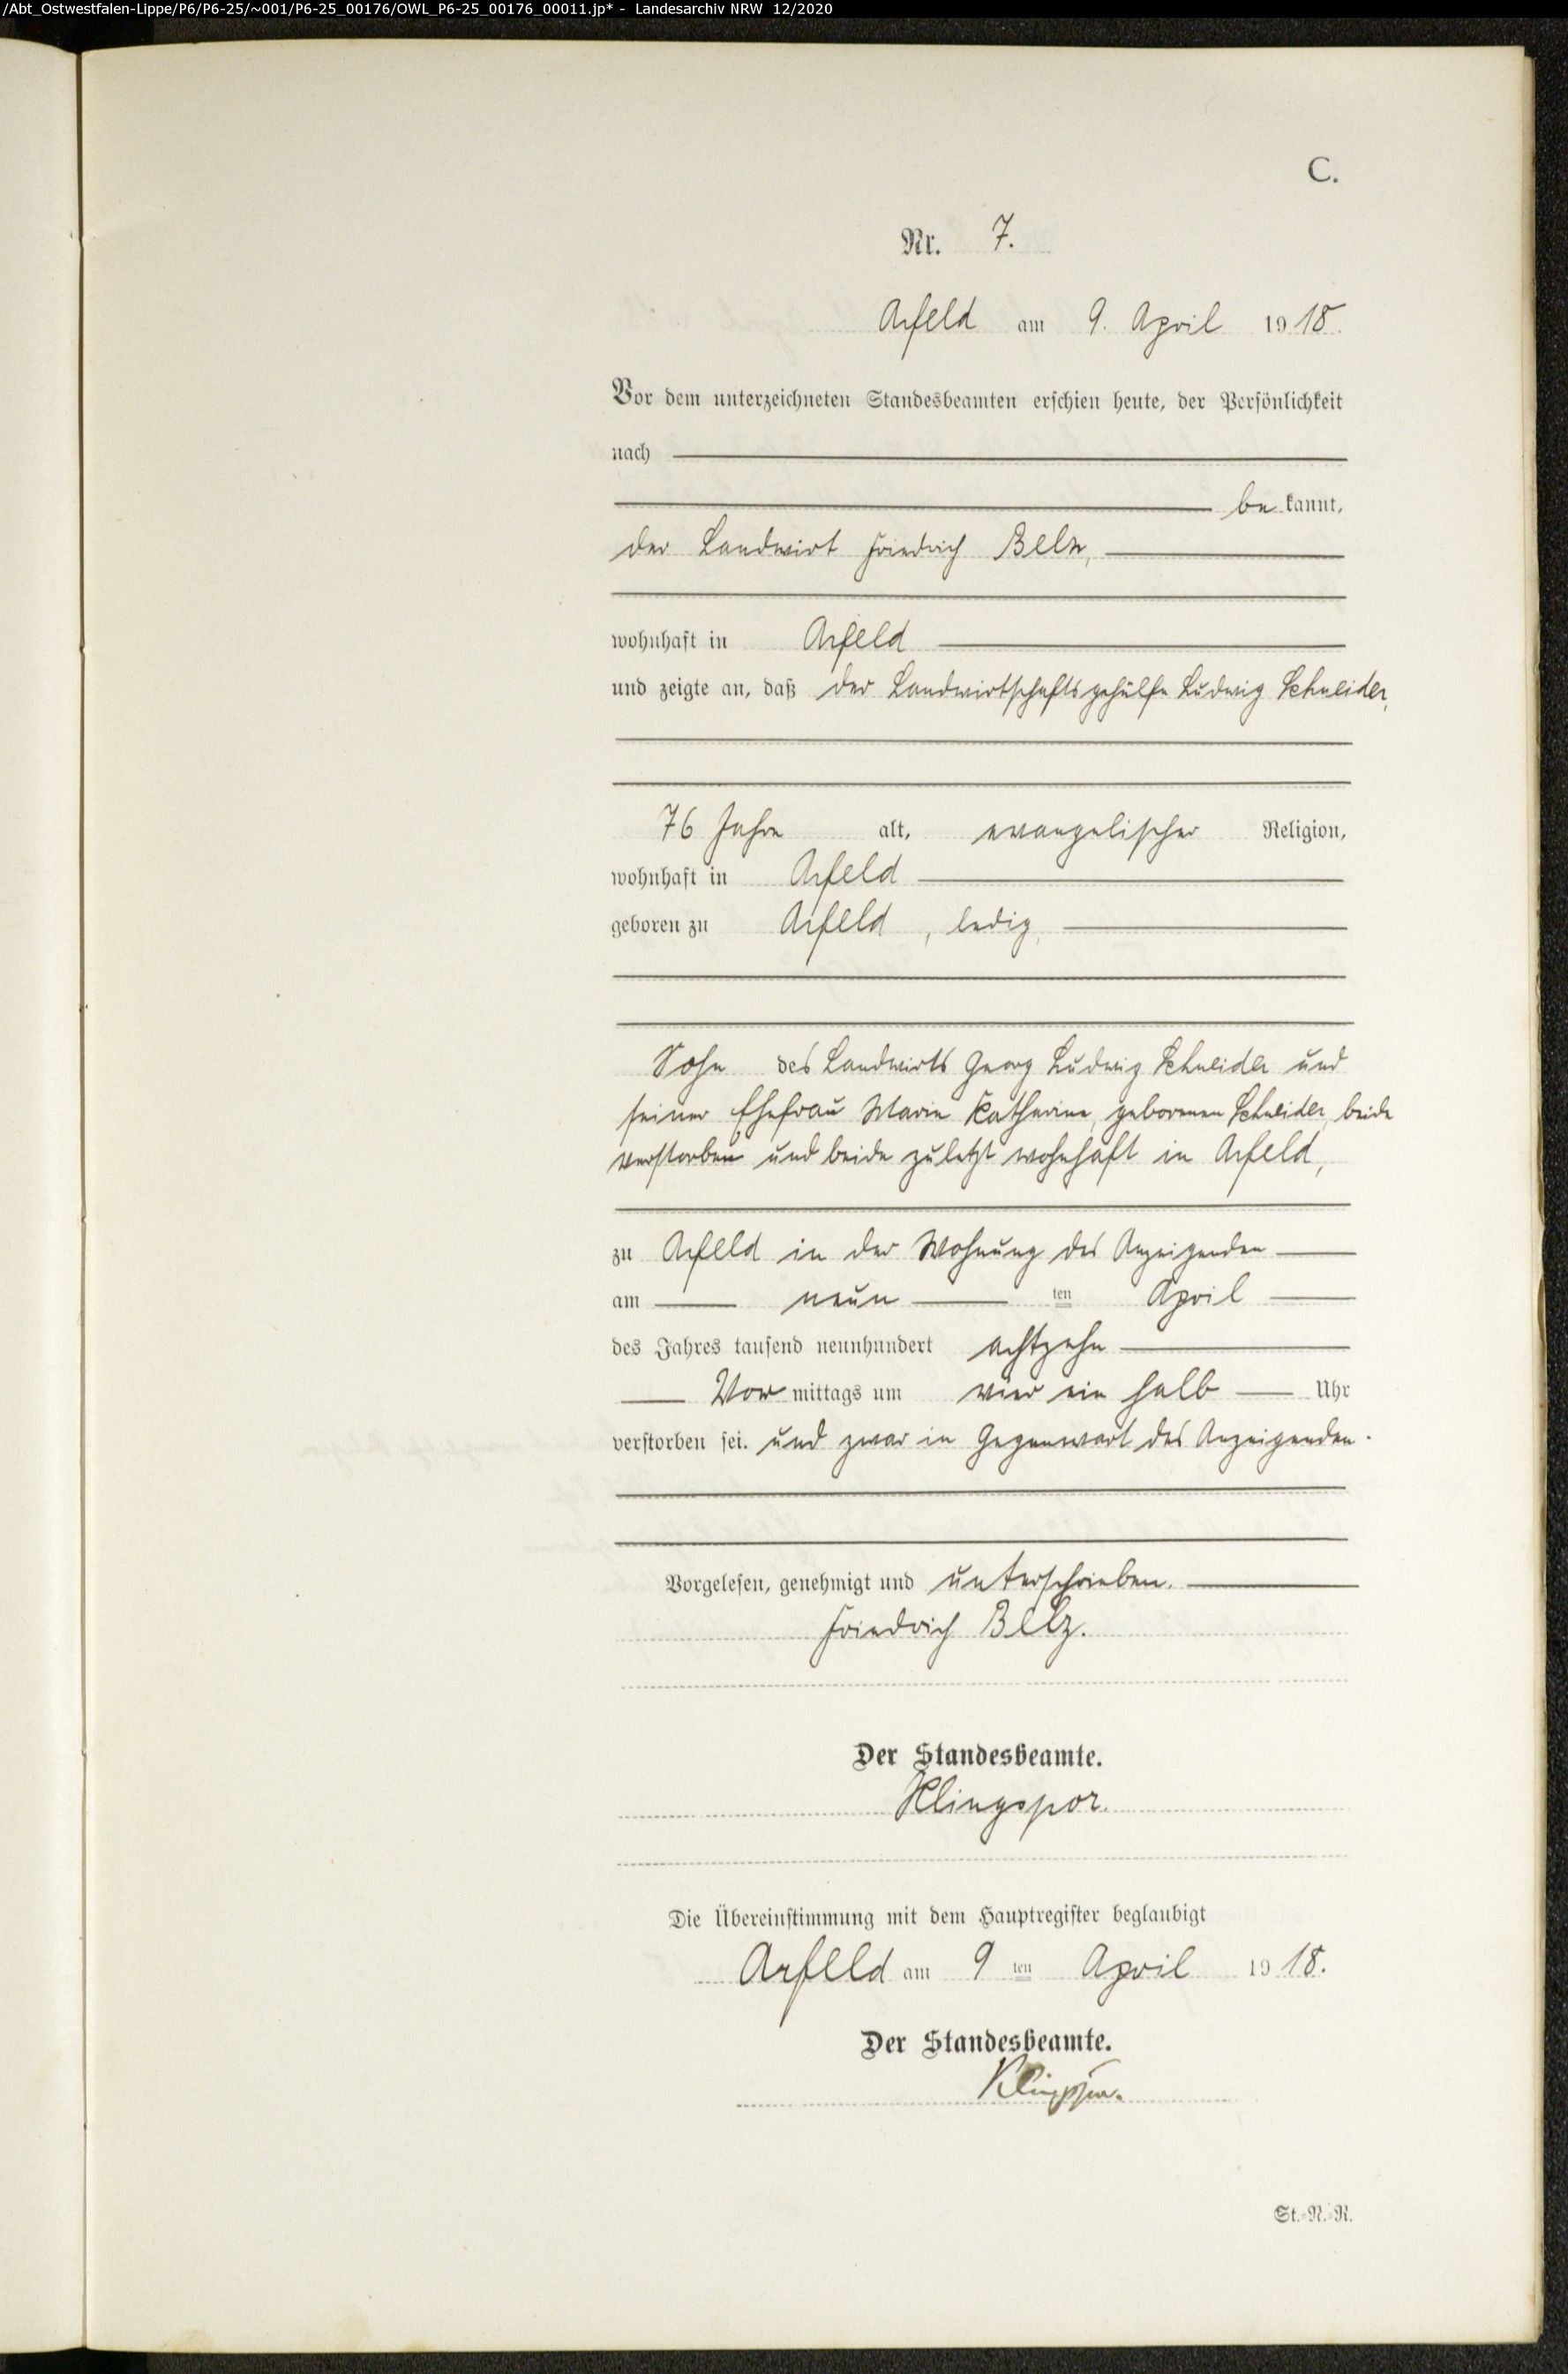 /Abt_Ostwestfalen-Lippe/P6/P6-25/~001/P6-25_00176/OWL_P6-25_00176_00011.jp* - Landesarchiv NRW 12/2020
C.
Nr. 7.
Arfeld am 9. April 1918.
Vor dem unterzeichneten Standesbeamten erschien heute, der Persönlichkeit
nach
be kannt,
der Landwirt Friedrich Belz,
wohnhaft in Arfeld
und zeigte an, daß der Landwirtschaftsgehülfe Ludwig Schneider,
76 Jahre alt, evangelischer Religion,
wohnhaft in Arfeld
geboren zu Arfeld, ledig,
Sohn des Landwirts Georg Ludwig Schneider und
seiner Ehefrau Marie Katharine, geborenen Schneider, beide
verstorben und beide zuletzt wohnhaft in Arfeld,
zu Arfeld in der Wohnung des Anzeigenden
am neun ten April
des Jahres tausend neunhundert achtzehn
Vor mittags um vier ein halb Uhr
verstorben sei. und zwar in Gegenwart des Anzeigenden.
Vorgelesen, genehmigt und unterschrieben.
Friedrich Belz.
Der Standesbeamte.
Klingspor.
Die Übereinstimmung mit dem Hauptregister beglaubigt
Arfeld am 9 ten April 1918.
Der Standesbeamte.
Klingspor.
St.-N.-R.